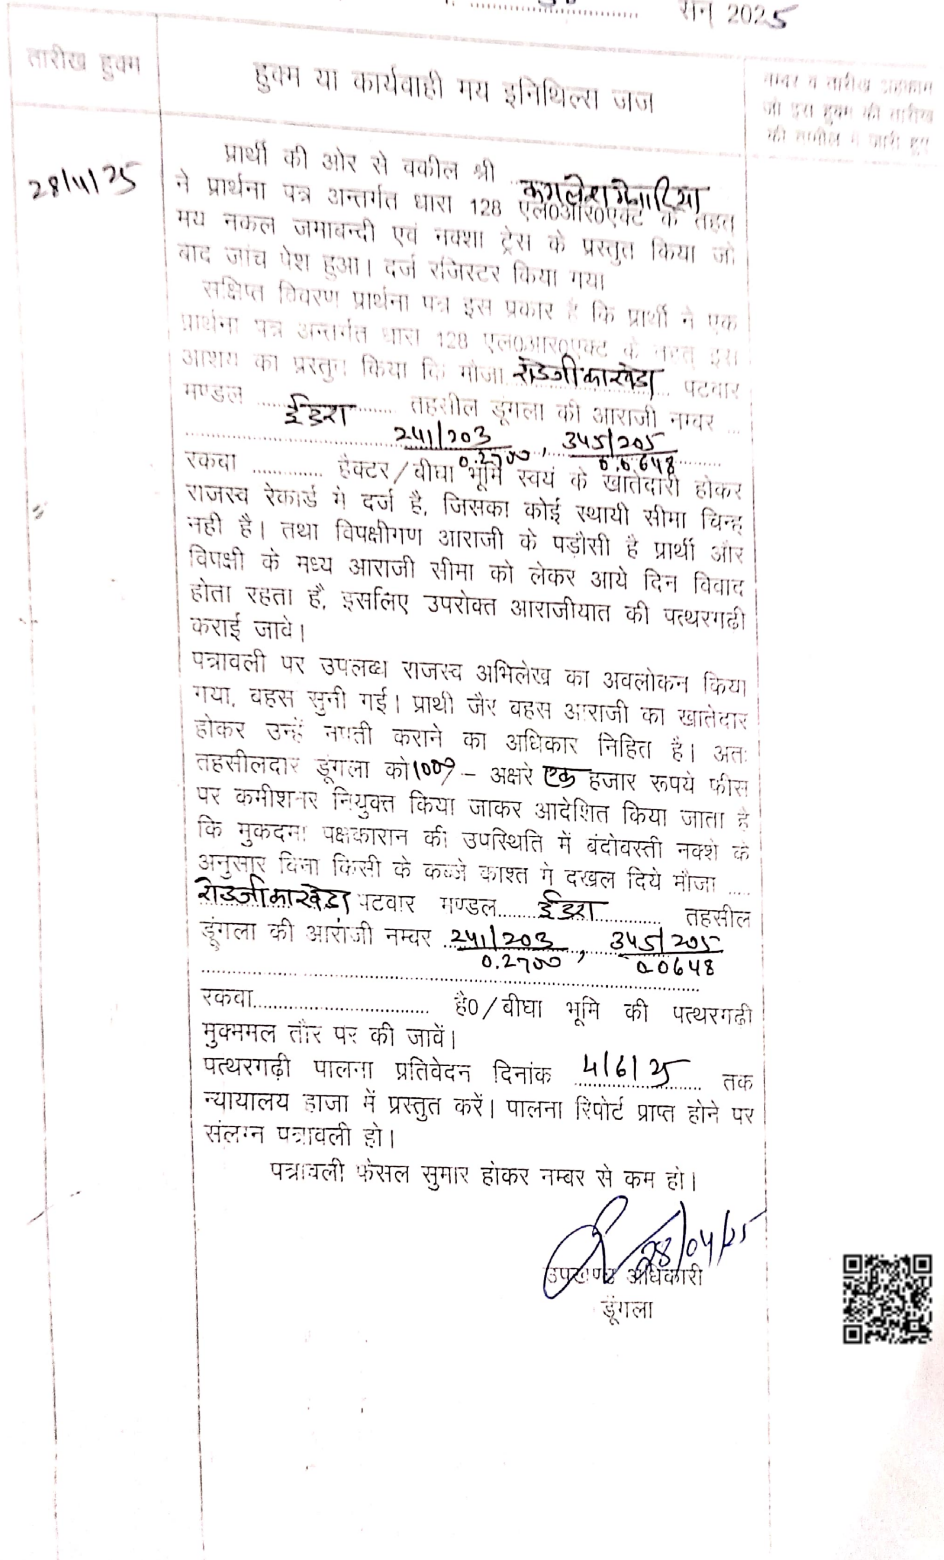 सन् 2025
तारीख हुक्म
हुक्म या कार्यवाही मय इनिथिल्स जज
नम्बर व तारीख अहकाम
जो इस हुक्म की तारीख
की तामील में जारी हुए
28/4/25
प्रार्थी की ओर से वकील श्री
ने प्रार्थना पत्र अन्तर्गत धारा 128 एल0आर0एक्ट के तहत
मय नकल जमाबन्दी एवं नक्शा ट्रेस के प्रस्तुत किया जो
बाद जांच पेश हुआ। दर्ज रजिस्टर किया गया
सक्षिप्त विवरण प्रार्थना पत्र इस प्रकार है कि प्रार्थी ने एक
प्रार्थना पत्र अन्तर्गत धारा 128 एल0आर0एक्ट के तहत इस
आशय का प्रस्तुत किया कि मौजा रोडजीकाखेडा पटवार
मण्डल ......... ईडरा ......... तहसील डूंगला की आराजी नम्बर ...
241/203 , 345/205
0.2700 0.0648
रकवा ............ हैक्टर/बीघा भूमि स्वयं के खातेदारी होकर
राजस्व रेकार्ड में दर्ज है, जिसका कोई स्थायी सीमा चिन्ह
नही है। तथा विपक्षीगण आराजी के पड़ौसी है प्रार्थी और
विपक्षी के मध्य आराजी सीमा को लेकर आये दिन विवाद
होता रहता है, इसलिए उपरोक्त आराजीयात की पत्थरगढी
कराई जावे।
पत्रावली पर उपलब्ध राजस्व अभिलेख का अवलोकन किया
गया, वहस सुनी गई। प्राथी जैर वहस आराजी का खातेदार
होकर उन्हें नपती कराने का अधिकार निहित है। अतः
तहसीलदार डूंगला को 1000/- अक्षरे एक हजार रूपये फीस
पर कमीशनर नियुक्त किया जाकर आदेशित किया जाता है
कि मुकदमा पक्षकारान की उपस्थिति में बंदोवस्ती नक्शे के
अनुसार विना किसी के कब्जे काश्त मे दखल दिये मौजा ....
रोडजीकाखेडा पटवार मण्डल....... ईडरा ............ तहसील
डूंगला की आराजी नम्बर 241/203 , 345/205
0.2700 0.0648
रकवा.............................. है0/बीघा भूमि की पत्थरगढी
मुक्ममल तौर पर की जावें।
पत्थरगढ़ी पालना प्रतिवेदन दिनांक 4/6/25 तक
न्यायालय हाजा में प्रस्तुत करें। पालना रिपोर्ट प्राप्त होने पर
संलग्न पत्रावली हो।
पत्रावली फेसल सुमार होकर नम्बर से कम हो।
28/04/25
उपखण्ड अधिकारी
डूंगला